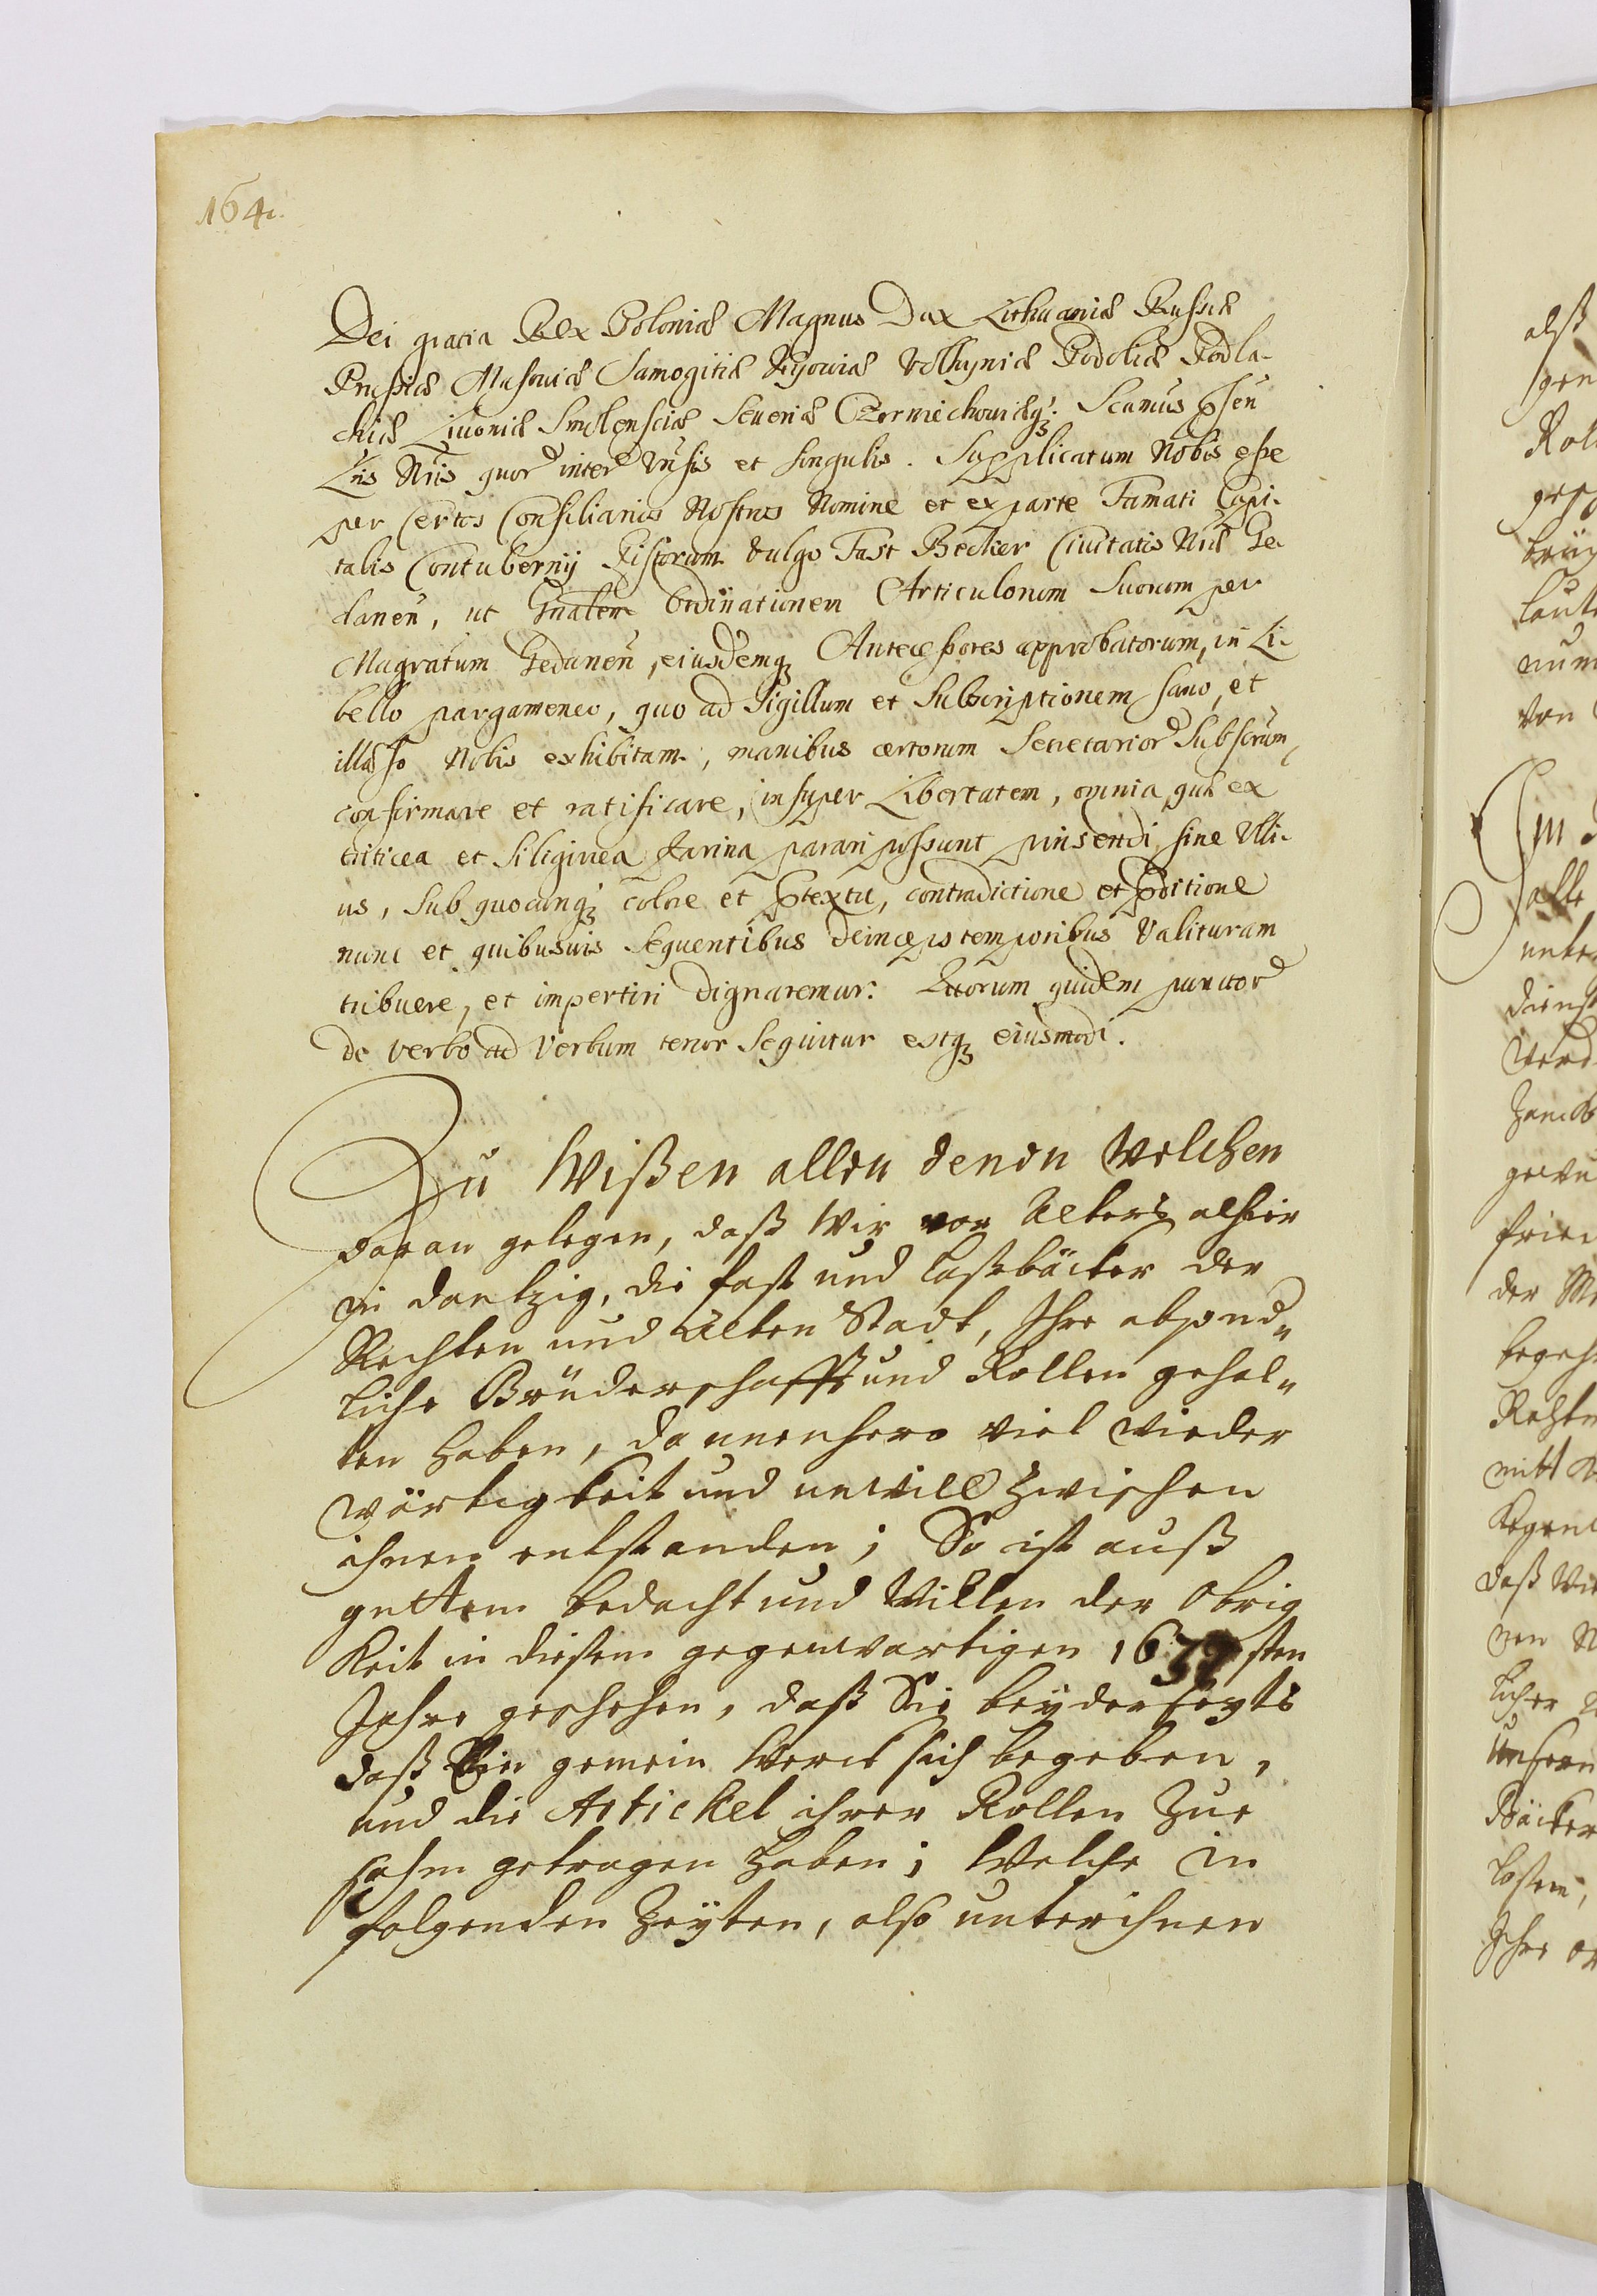 164.
Dei gratia Rex Poloniæ Magnus Dux Lithuaniæ Russiæ
Prussiæ Masouiæ Samogitiæ Kyouiæ Volhyniæ Podoliæ Podla-
chiæ Liuoniæ Smolensciæ Seueriæ Czerniechouiæq;
per Certos Consiliarios Nostros Nomine et ex parte Famati Capi-
talis Contubernij Pistorum vulgo Fast Becker Ciuitatis Nræ Ge-
danen, ut Gnalem Ordinationem Articulorum Suorum per
Magratum Gedanen, eiusdemq; Antecessores approbatorum, in Li-
bello pargameneo, quo ad Sigillum et Subscriptionem sano, et
illæso Nobis exhibitam, manibus certorum Secretarior Subscrum,
confirmare et ratificare, insuper Libertatem, omnia quæ ex
triticea et Siliginea farina parari possunt pinsendi, sine Ulli-
us, Sub quocunq; colore et ptextu, contradictione et
nunc et quibusuis Sequentibus deinceps temporibus Valituram
tribuere, et impertiri dignaremur: Quorum quidem punctor
de verbo ad Verbum tenor Sequitur estq; eiusmodi.
Zu Wißen allen denen Welchen
daran gelegen, daß Wir von Alters alhier
in dantzig, die fast und Loßbäcker der
Rechten und Alten Stadt, Ihre absond„
liche Brüderschafft und Rollen gehal„
ten haben, dannenhero viel wieder
wärtigkeit und unwill zwischen
ihnen entstanden; So ist auß
guttem bedacht und Willen der Obrig
keit in diesem gegenwartigen sten
Jahre geschehen, daß Sie beyderseyts
daß Ein gemein Werck sich begeben,
und die Artickel ihrer Rollen zue
sahm getragen haben; Welche in
folgenden Zeyten, also unter ihnen